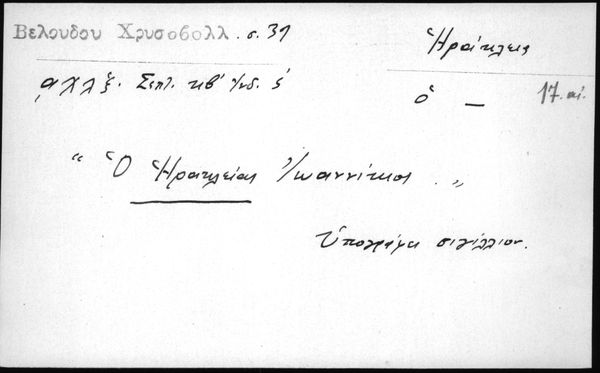 Βελουδου Χρυσοβολλ. σ. 31
Ἡράκλεια
͵αχλξ. Σεπτ. κβʹ ἰνδ. ϛ́
ὁ —
17. αἰ.
" Ὁ Ἡρακλείας Ἰωαννίκιος . "
Ὑπογράφει σιγίλλιον.